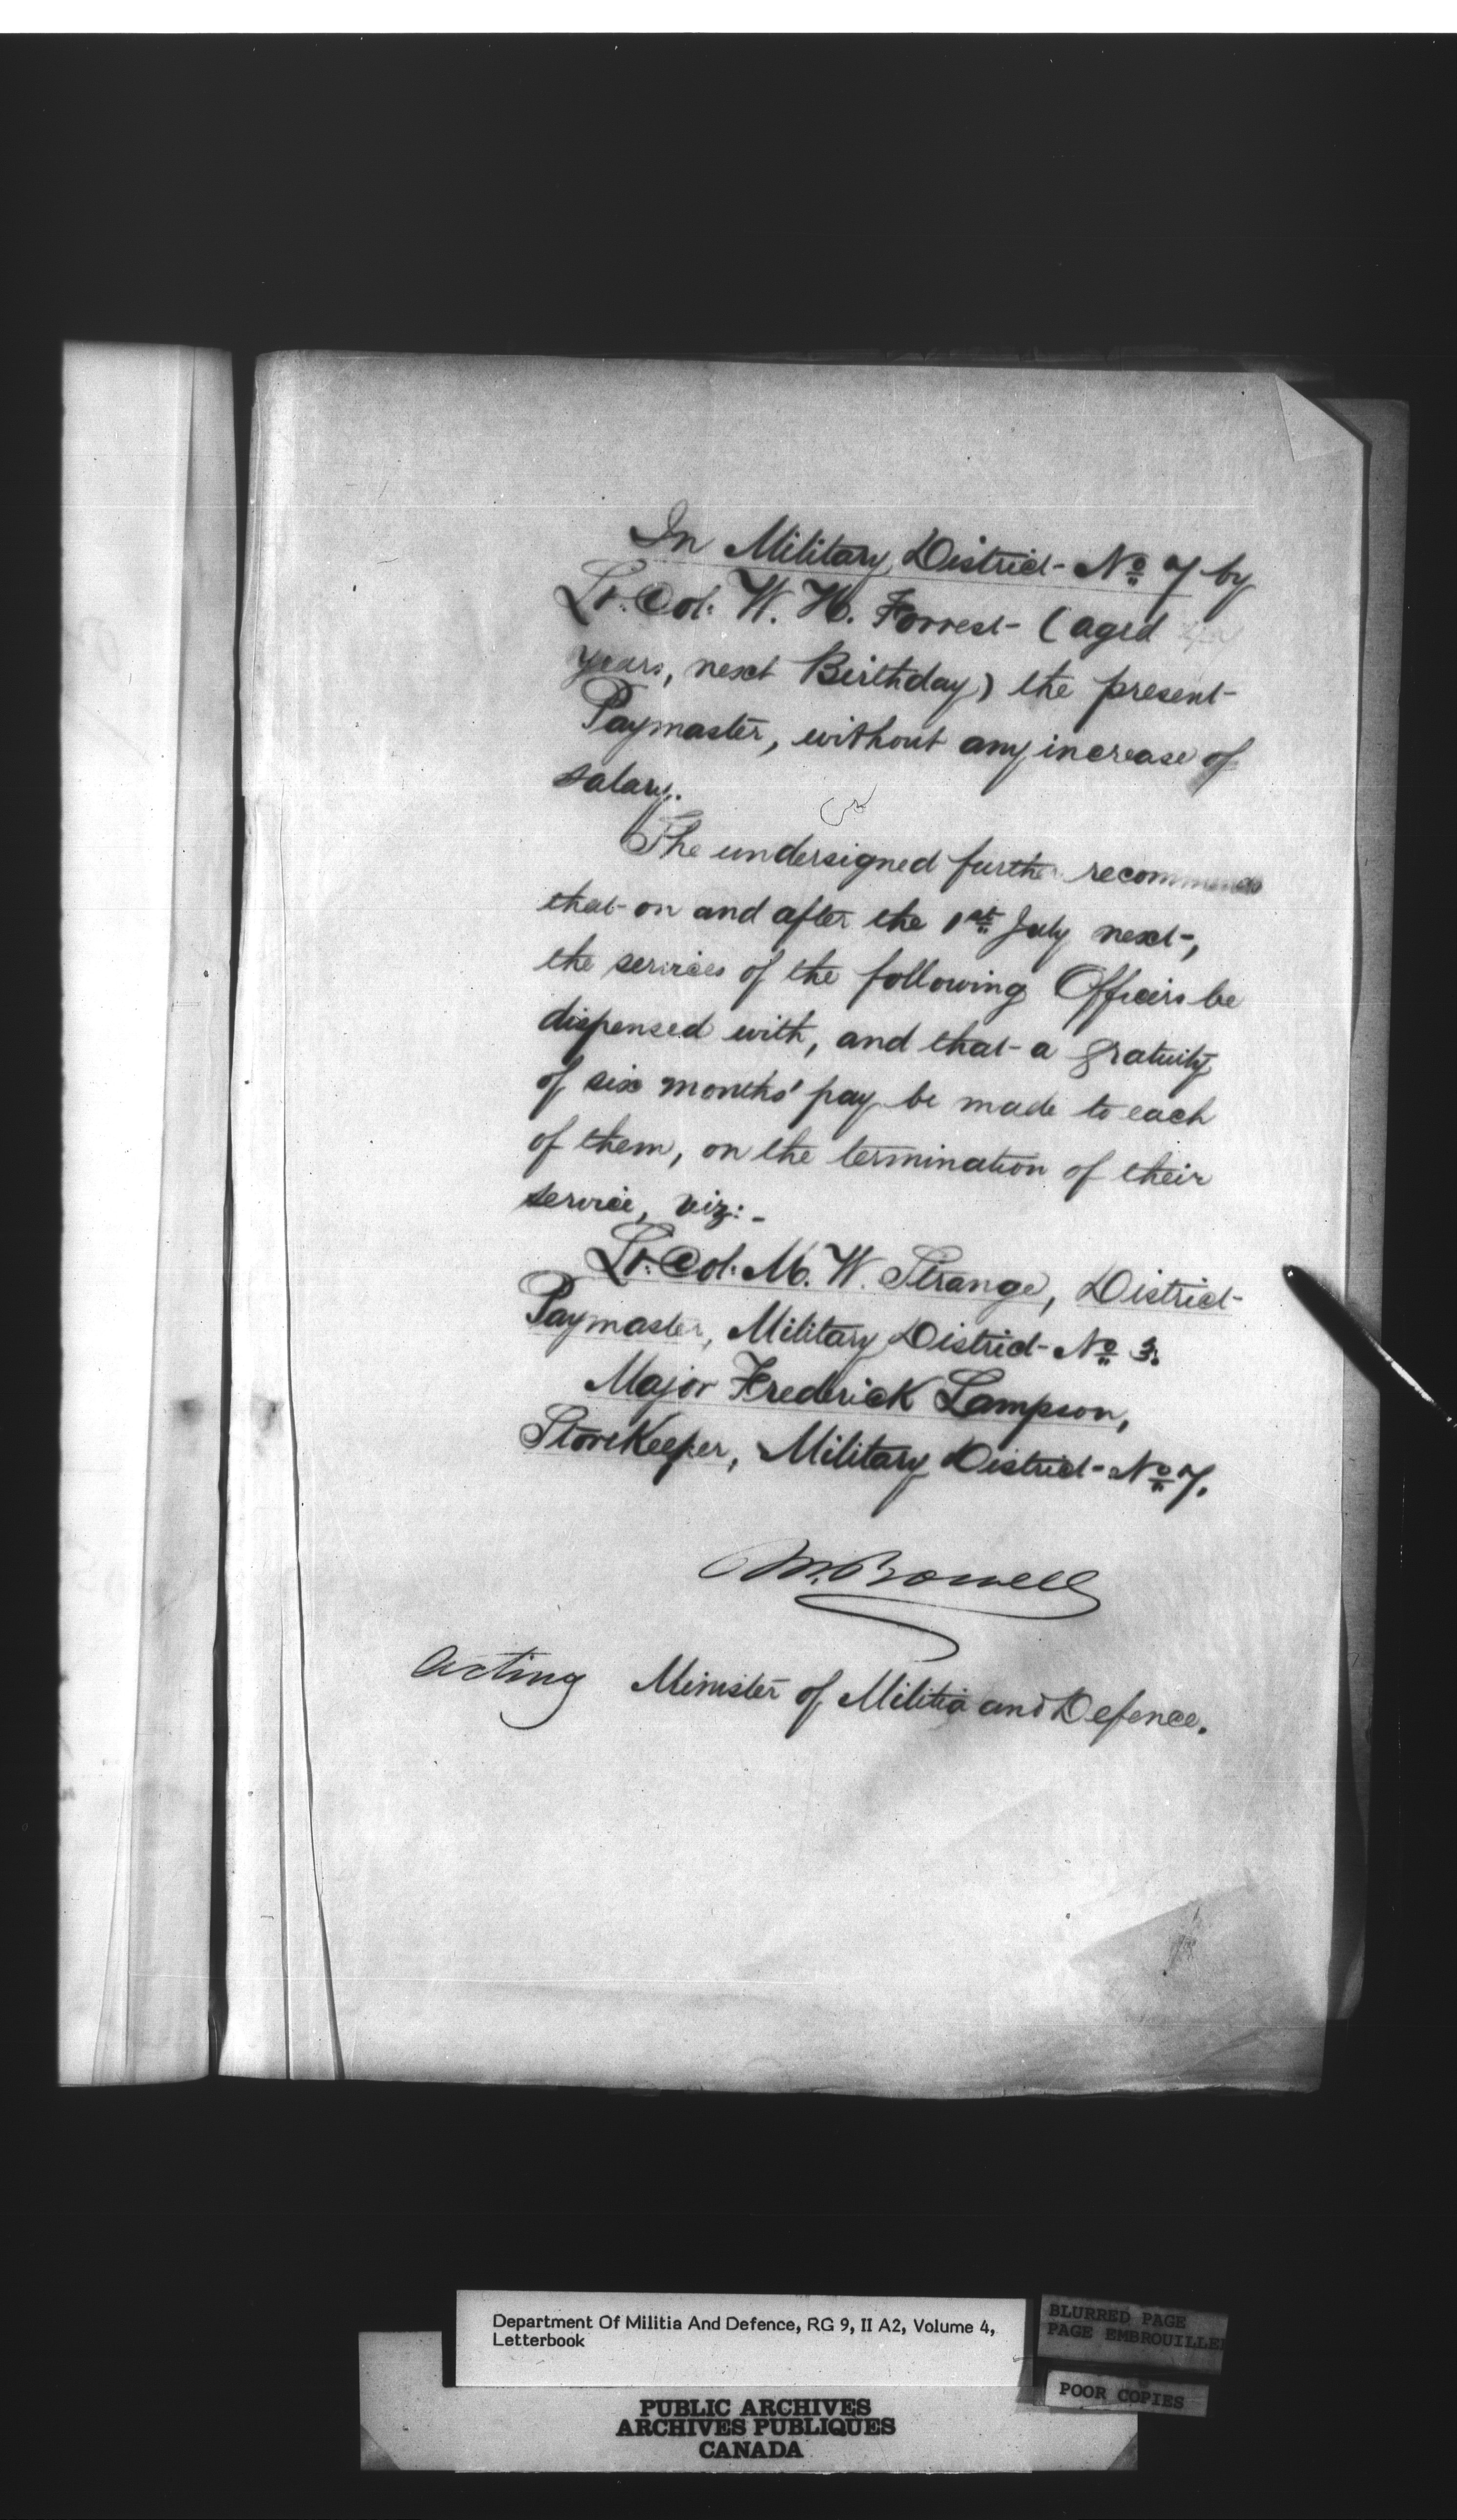 In Military District - No 7 by
Lt. Col: W. H. Forrest - (aged
years, next Birthday) the present
Paymaster, without any increase of
salary.
The undersigned further recommends
that on and after the 1st July next,
the services of the following Officers be
dispensed with, and that a gratuity
of six months' pay be made to each
of them, on the termination of their
service, viz: -
Lt. Col: M. W. Strange, District
Paymaster, Military District - No 3.
Major Frederick Lampson,
StoreKeeper, Military District - No 7.
M. Bowell
Acting Minister of Militia and Defence.
Department Of Militia And Defence, RG 9, II A2, Volume 4,
Letterbook
BLURRED PAGE
PAGE EMBROUILLE
POOR COPIES
PUBLIC ARCHIVES
ARCHIVES PUBLIQUES
CANADA